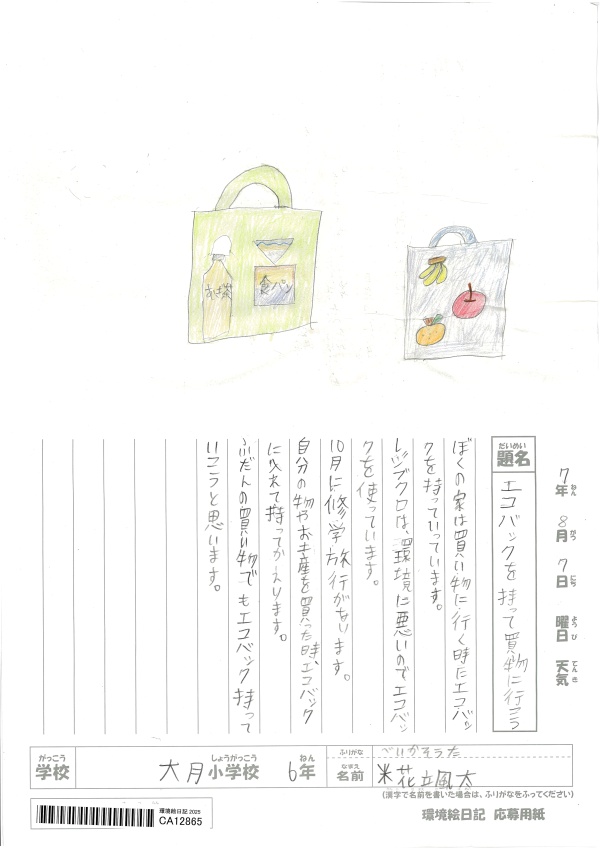 むぎ茶
食パン
7年 8月 7日 曜日 天気
ねん がつ にち ようび てんき
だいめい
題名
エコバックを持って買物に行こう
ぼくの家は買い物に行く時にエコバッ
クを持っていっています。
レジブクロは、環境に悪いのでエコバッ
クを使っています。
10月に修学旅行があります。
自分の物やお土産を買った時、エコバック
に入れて持ってかえります。
ふだんの買い物でもエコバック持って
いこうと思います。
がっこう
学校
大月小学校 6年
しょうがっこう ねん
ふりがな べいかそうた
なまえ
名前 米花颯太
(漢字で名前を書いた場合は、ふりがなをふってください)
環境絵日記 2025
CA12865
環境絵日記 応募用紙